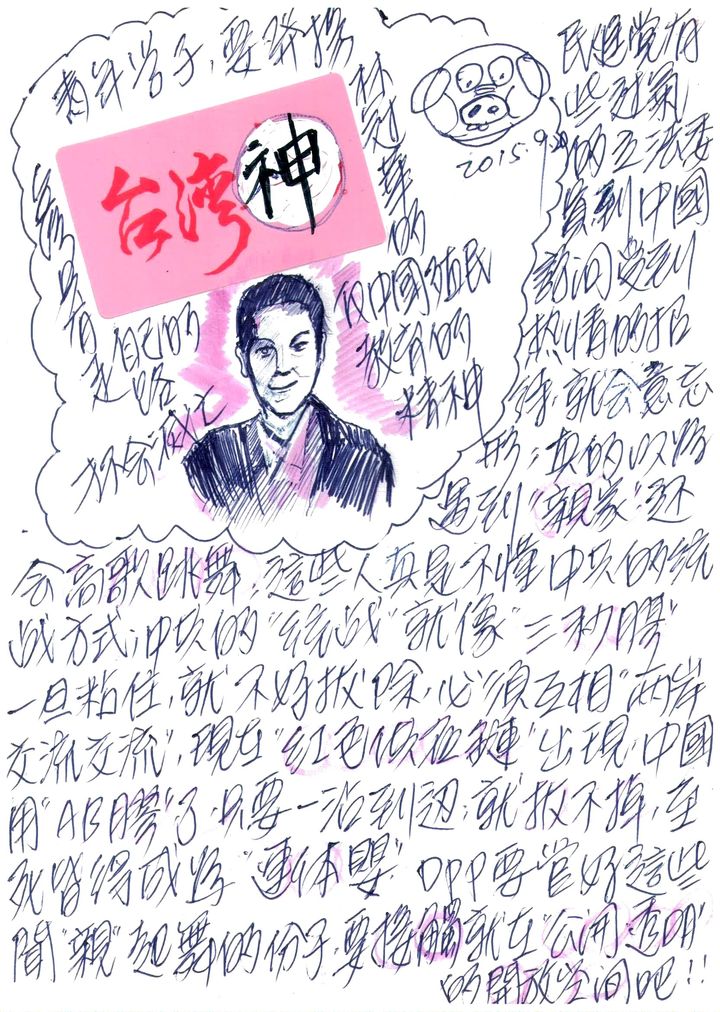 青年学子,要發揚
林冠華的
反中國殖民
教育的
精神
台灣
有自己的
走路
才不会滅亡
台灣神
2015.9.
民進党有
些过氣
的立法委
員到中國
訪问受到
熱情的招
待,就会忘
形,真的以為
遇到"親家"还
会高歌跳舞,這些人真是不懂中共的統
战方式,中共的"統战"就像"三秒膠"
一旦粘住,就不好拔除,必須互相"兩岸
交流交流",現在"紅色"出現,中國
用"AB膠"了,只要一沾到边,就拔不掉,至
死皆得成為"連体嬰"DPP要管好這些
聞"親"起舞的份子,要接觸就在"公開,透明"
的開放空间吧!!